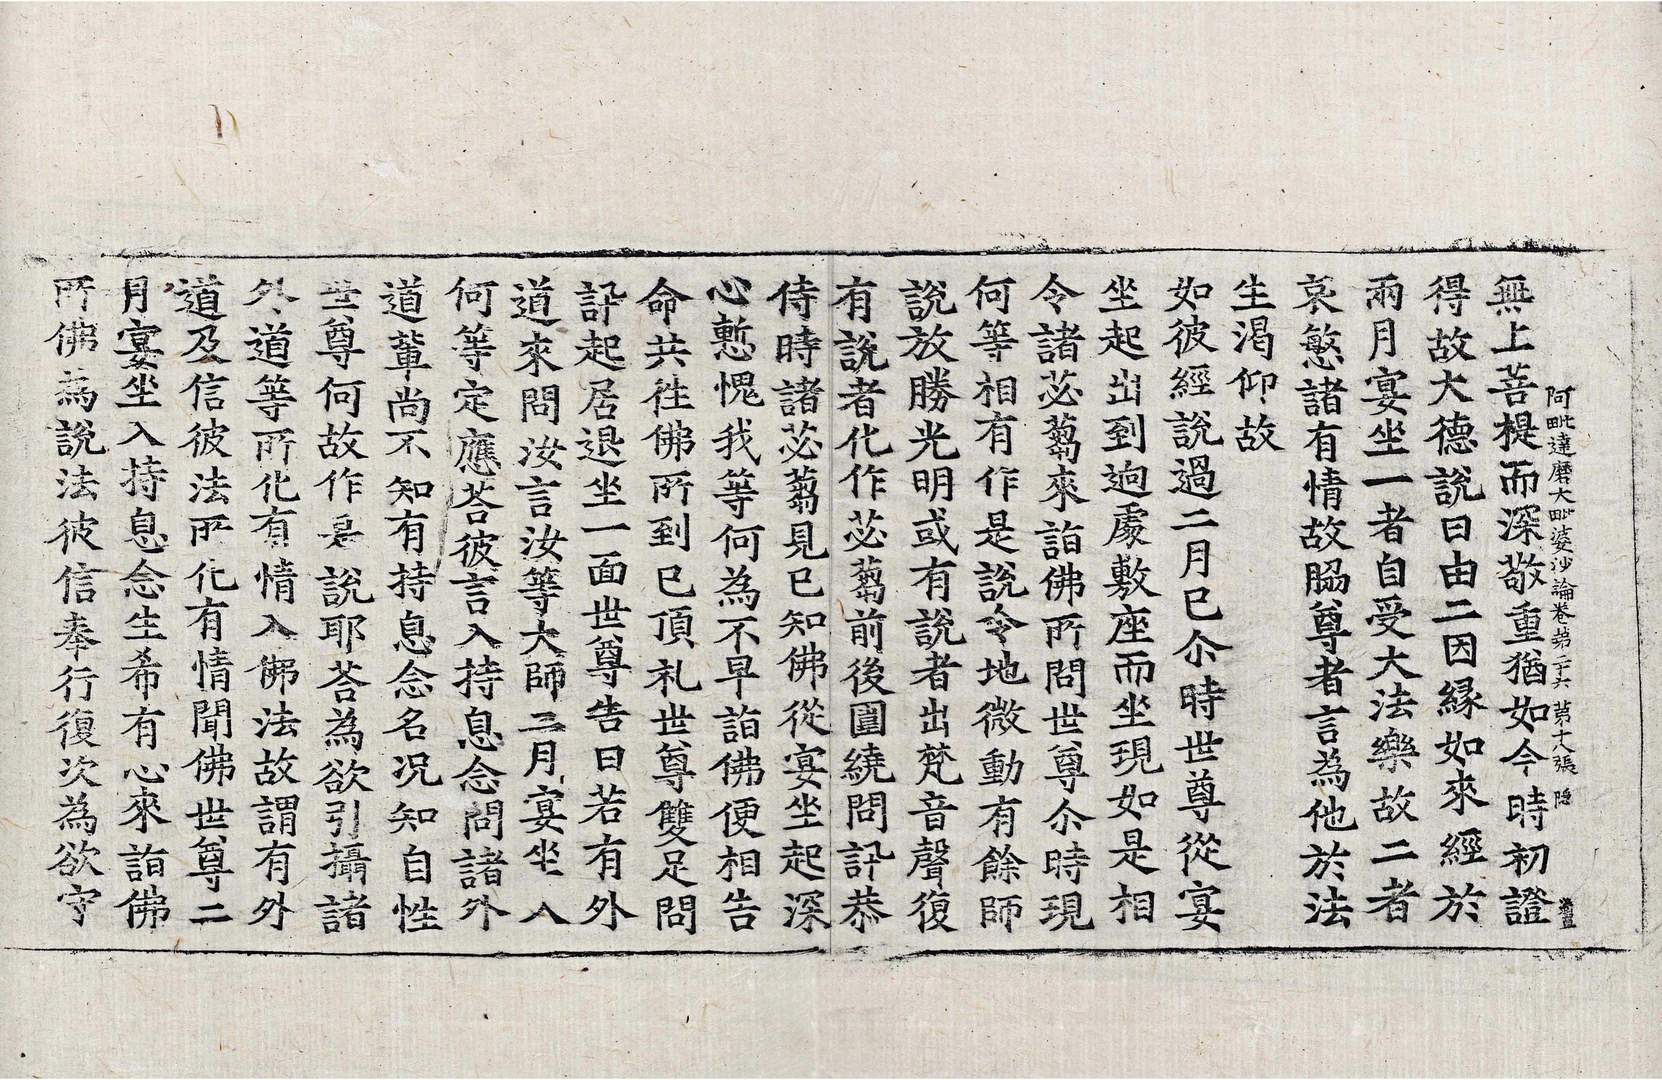 阿毗達磨大毗婆沙論卷第二十六 第十八張 隨
無上菩提而深敬重猶如今時初證
得故大德說曰由二因緣如來經於
兩月宴坐一者自受大法樂故二者
哀愍諸有情故脇尊者言為他於法
生渴仰故
如彼經說過二月已尒時世尊從宴
坐起出到逈處敷座而坐現如是相
令諸苾蒭來詣佛所問世尊尒時現
何等相有作是說令地微動有餘師
說放勝光明或有說者出梵音聲復
有說者化作苾蒭前後圍繞問訊恭
侍時諸苾蒭見已知佛從宴坐起深
心慙愧我等何為不早詣佛便相告
命共往佛所到已頂礼世尊雙足問
訊起居退坐一面世尊告曰若有外
道來問汝言汝等大師三月宴坐入
何等定應荅彼言入持息念問諸外
道輩尚不知有持息念名况知自性
世尊何故作是說耶荅為欲引攝諸
外道等所化有情入佛法故謂有外
道及信彼法所化有情聞佛世尊二
月宴坐入持息念生希有心來詣佛
所佛為說法彼信奉行復次為欲守